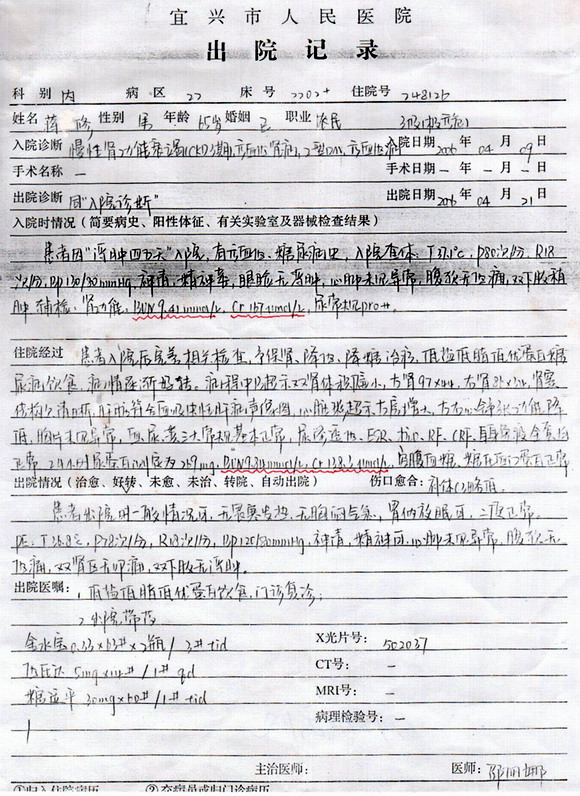 宜兴市人民医院
出院记录
科别 内 病区 22 床号 2202+ 住院号 248126
姓名 蒋 性别 男 年龄 65岁 婚姻 已 职业 农民
入院诊断 慢性肾功能衰竭(CKD3期),高血压肾病,2型DM,高血压病 入院日期2006年04月09日
手术名称 — 手术日期 — 年 — 月 — 日
出院诊断 同"入院诊断" 出院日期2006年04月21日
入院时情况(简要病史、阳性体征、有关实验室及器械检查结果)
患者因"浮肿四五天"入院,有高血压、糖尿病史,入院查体:T37.1℃,P80次/分,R18
次/分,BP130/80mmHg,神清,精神萎,眼睑无浮肿,心肺未见异常,腹软无压痛,双下肢稍
肿,辅检:肾功能:BUN9.41mmol/L,Cr157umol/L,尿常规pro++.
住院经过 患者入院后完善相关检查,予保肾、降压、降糖治疗,低盐低脂低优蛋白糖
尿病饮食,病情逐渐好转。病程中B超示双肾体积偏小,左肾97×44,右肾
结构欠清晰,肝脏符合血吸虫性肝病声像图,心脏彩超示左房增大,左右心舒张功能降
低,胸片未见异常,血、尿、粪三大常规基本正常,ESR、RF、CRP、
正常,24小时尿蛋白测定为 mg,BUN9.80mmol/L,Cr138.3umol/L,
出院情况(治愈、好转、未愈、未治、转院、自动出院) 伤口愈合:
患者出院时一般情况可,无畏寒发热,无胸闷气急,胃纳夜眠可,二便正常。
PE:T36.8℃,P78次/分,R18次/分,BP125/80mmHg,神清,精神可,心肺未见异常,腹软无
压痛,双肾区无叩痛,双下肢无浮肿。
出院医嘱:1.低盐低脂低优蛋白饮食,门诊复诊;
2.出院带药
金水宝0.33×63#×2瓶/3# tid X光片号: 502037
5mg×14#/1# qd CT号: —
糖适平 30mg×60#/1# tid MRI号: —
病理检验号: —
主治医师: 医师:
①归入住院病历 ②交病员或归门诊病历